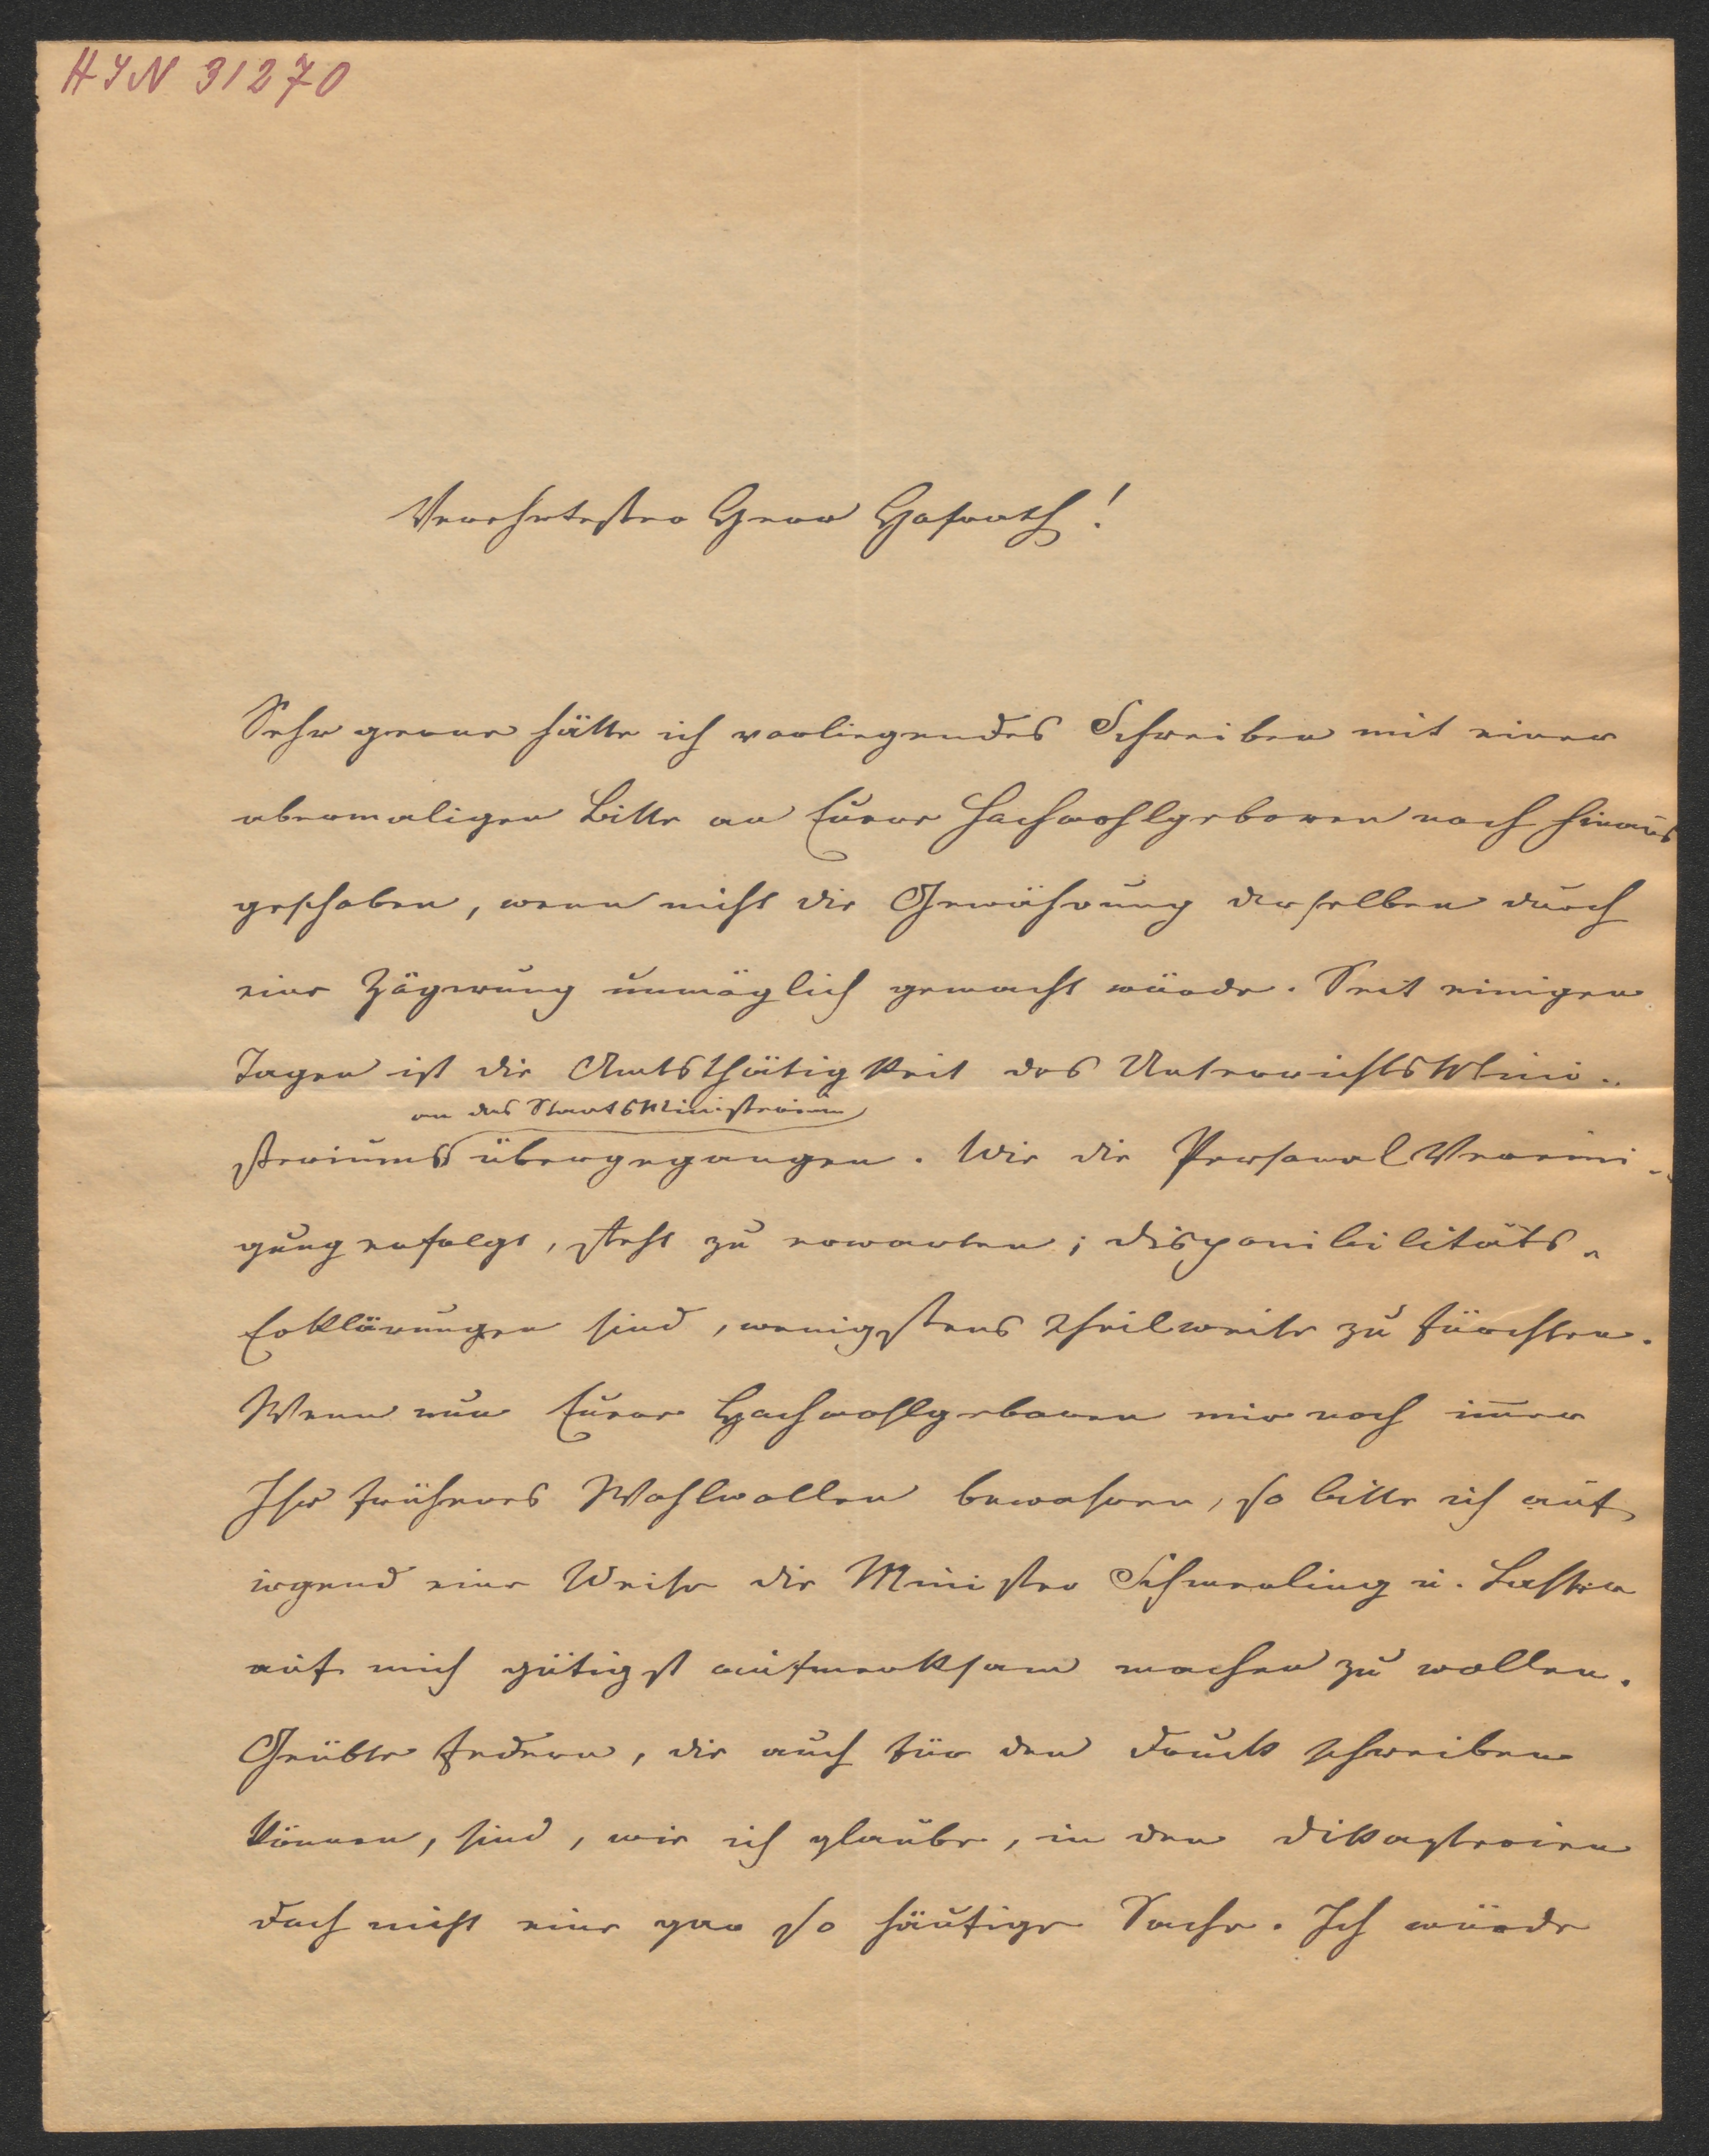 HIN 31270
Verehrtester Herr Hofrath!
Sehr gerne hätte ich vorliegendes Schreiben mit einer
abermaligen Bitte an Euer Hochwohlgeboren noch hinaus
geschoben, wenn nicht die Gewährung derselben durch
eine Zögerung unmöglich gemacht würde. Seit einigen
Tagen ist die Amtsthätigkeit des UnterrichtsMini-
an das StaatsMinisterium
steriums übergegangen. Wie die PersonalVereini-
gung erfolgt, steht zu erwarten; Disponibilitäts-
Erklärungen sind, wenigstens theilweise zu fürchten.
Wenn nun Euer Hochwohlgeboren mir noch im̅er
Ihr früheres Wohlwollen bewahren, so bitte ich auf
irgend eine Weise die Minister Schmerling u. Lasser
auf mich gütigst aufmerksam machen zu wollen.
Geübte Federn, die auch für den Druck schreiben
können, sind, wie ich glaube, in den Dikasterien
doch nicht eine gar so häufige Sache. Ich würde